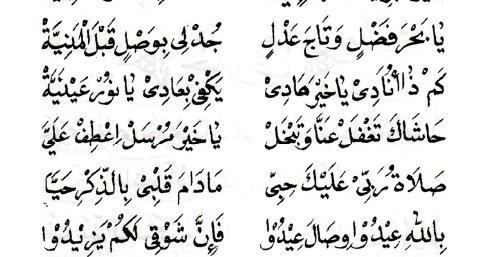 يَا بَحْرَ فَضْلٍ وَتَاجَ عَدْلٍ جُدْ لِى بِوَصْلٍ قَبْلَ الْمَنِيَّةْ
كَمْ ذَا أُنَادِىْ يَا خَيْرَ هَادِىْ يَكْفِىْ بِعَادِىْ يَا نُوْرَ عَيْنَيَّهْ
حَاشَاكَ تَغْفَلْ عَنَّا وَتَبْخَلْ يَا خَيْرَ مُرْسَلْ اِعْطِفْ عَلَيَّ
صَلَاةُ رَبِّىْ عَلَيْكَ حِبِّىْ مَادَامَ قَلْبِىْ بِالذِّكْرِ حَيَّا
بِاللهِ عِيْدُوْا وِصَالَ عِيْدُوْا فَإِنَّ شَوْقِى لَكُمْ يَزِيْدُوْا